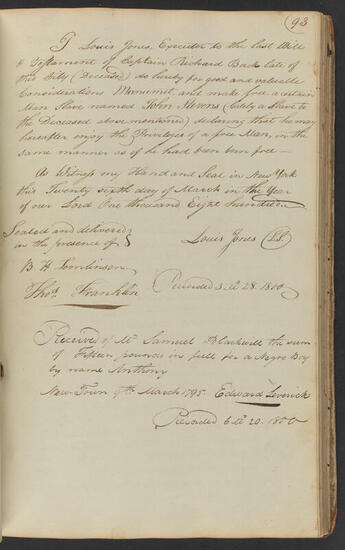 93
I Louis Jones, Executor to the last Will
& Testament of Captain Richard Back late of
this City (Deceased) do hereby for good and valuable
Considerations Manumit and make free a certain
Man Slave named John Stevens (lately a Slave to
the Deceased above mentioned) declaring that he may
hereafter enjoy the Privileges of a free Man, in the
same manner as if he had been born free —
As Witness my Hand and Seal in New York
this Twenty sixth day of March in the Year
of our Lord One thousand Eight hundred
Sealed and delivered
in the presence of
Louis Jones LS
B. H. Tomlinson
Thos. Franklin
Recorded 28. 1800
Received of Mr. Samuel Blackwell the sum
of Fifteen pounds in full for a Negro Boy
by name Anthony
New Town 9th March 1795. Edward Leverick
Recorded 20. 1800